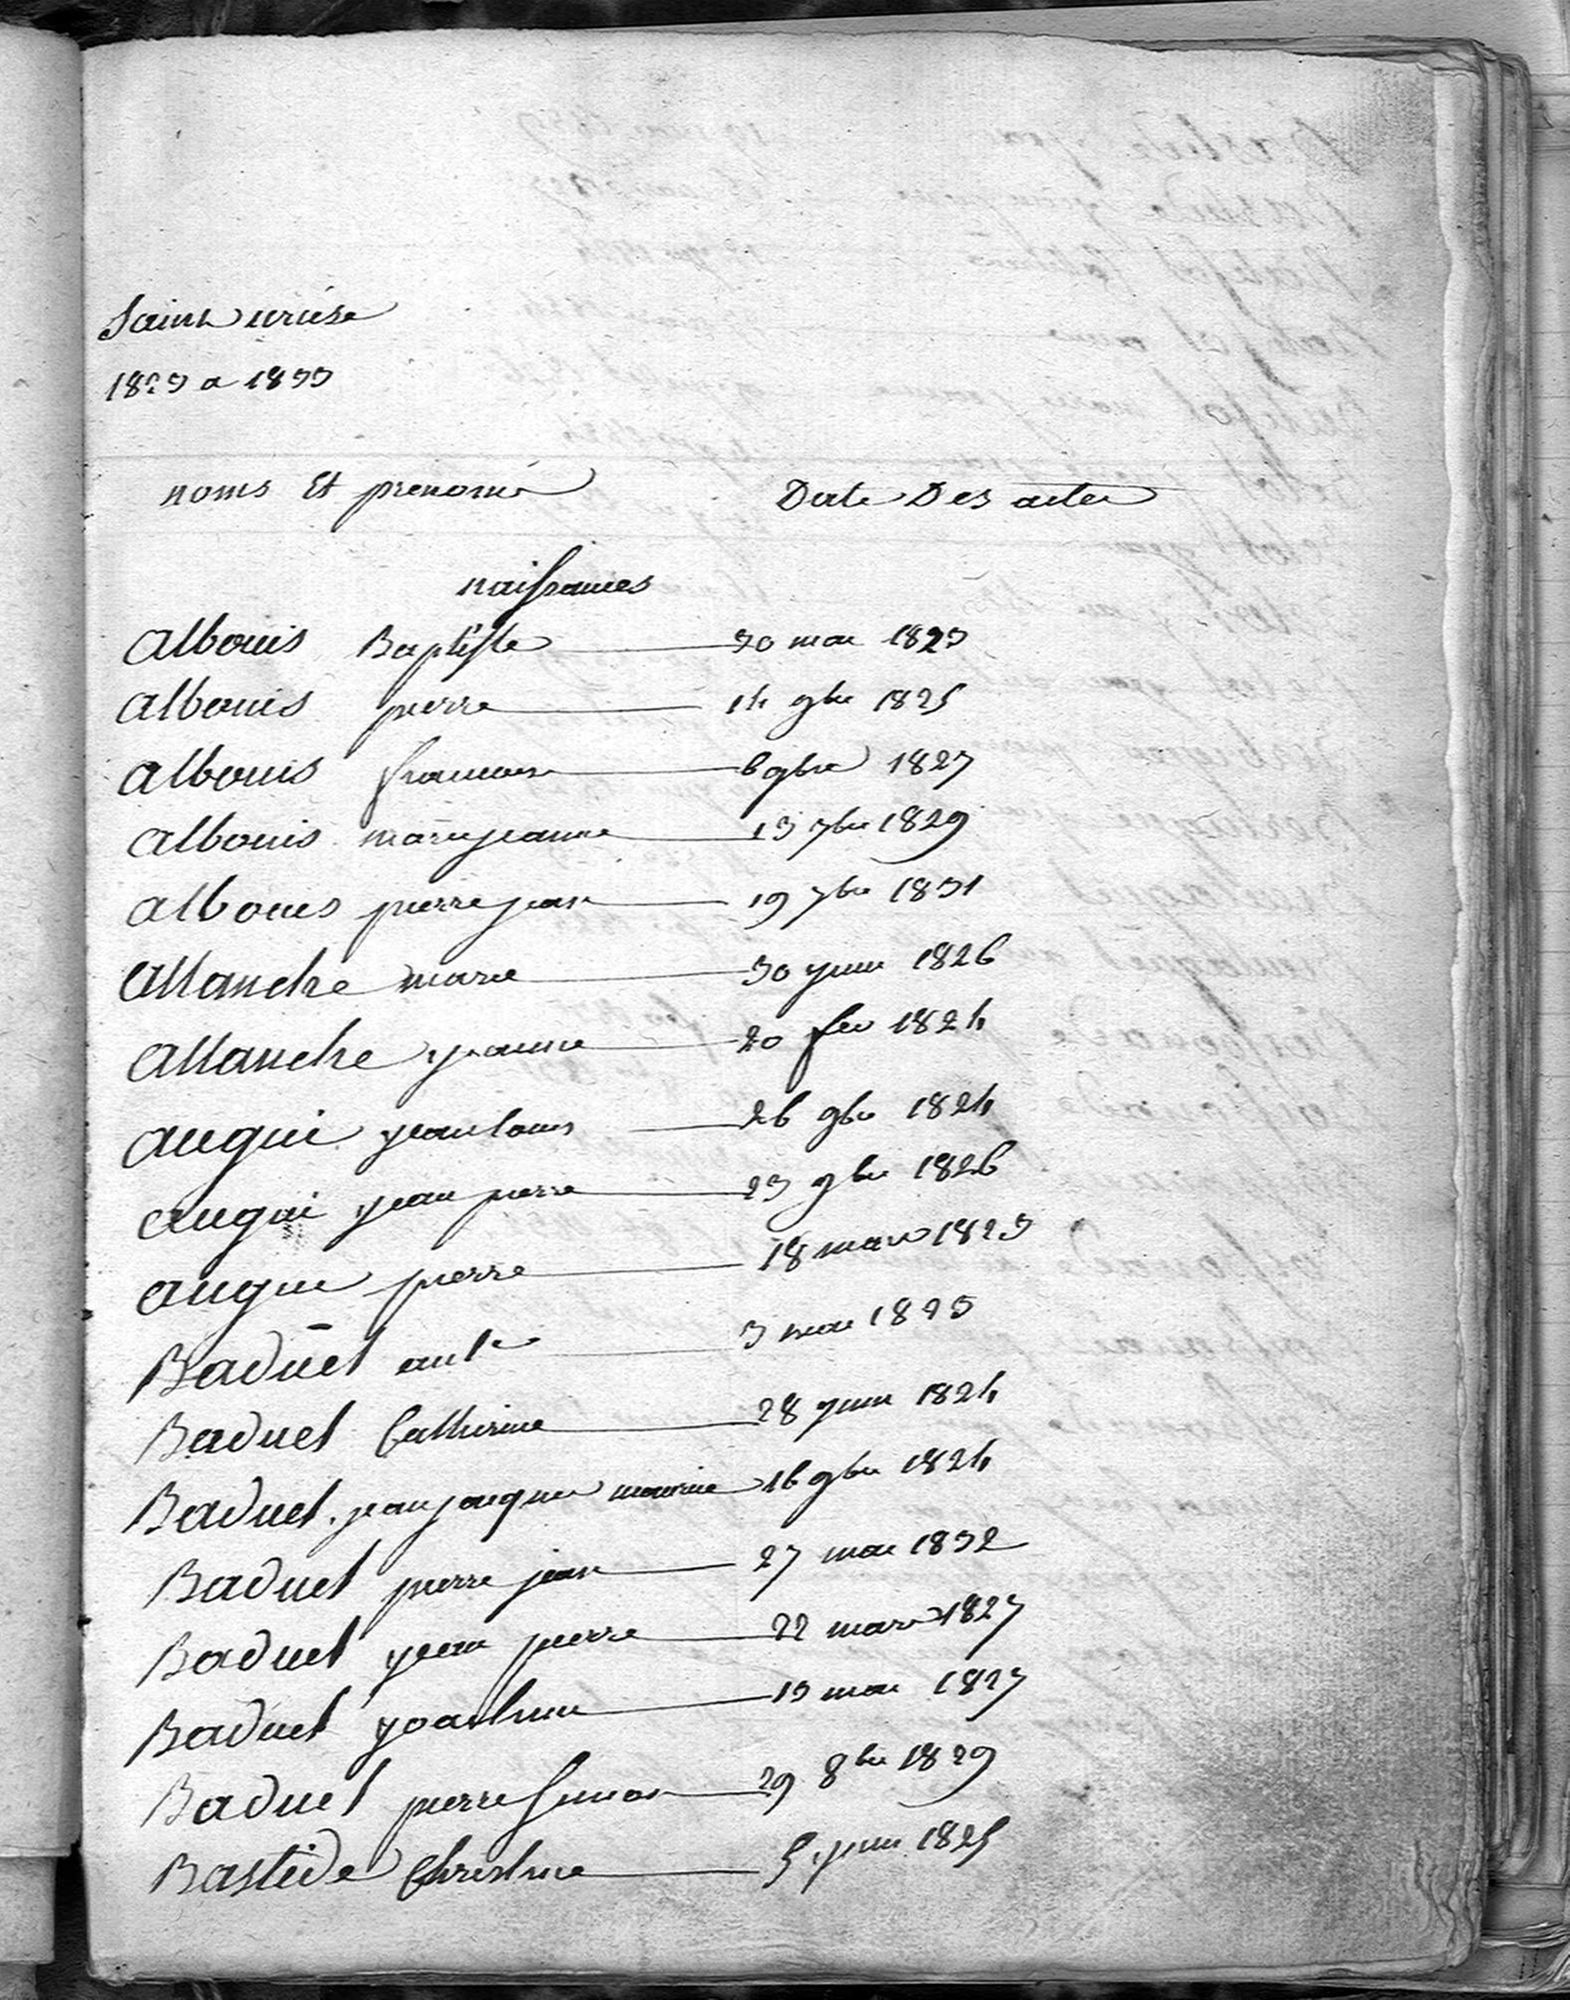 Saint urcise
1823 a 1833
noms Et prenoms Date Des actes
naissances
Albouis Baptiste 30 mai 1823
Albouis pierre 14 9bre 1825
Albouis francois 6 9bre 1827
Albouis mariejeanne 13 7bre 1829
Albouis pierre jean 19 7bre 1831
Allanche marie 30 juin 1826
Allanche jeanne 20 fev 1824
augui jean louis 26 9bre 1824
augui jean pierre 23 9bre 1826
augui pierre 18 mars 1823
Baduel ante 3 mai 1823
Baduel Catherine 28 juin 1824
Baduel jean jacques maurice 16 9bre 1824
Baduel pierre jean 27 mai 1832
Baduel jean pierre 22 mars 1827
Baduel 13 mai 1827
Baduel pierre simon 29 8bre 1829
Bastide Christine 5 juin 1825